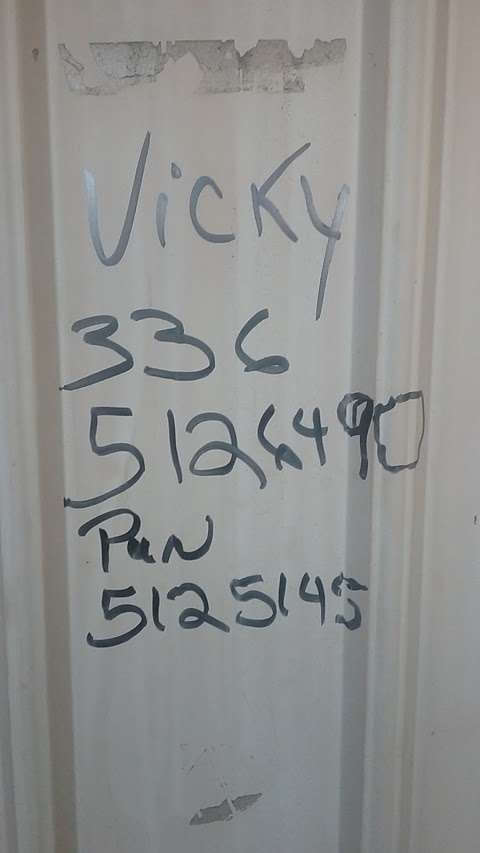 Vicky
336
5126490
Pan
5125145